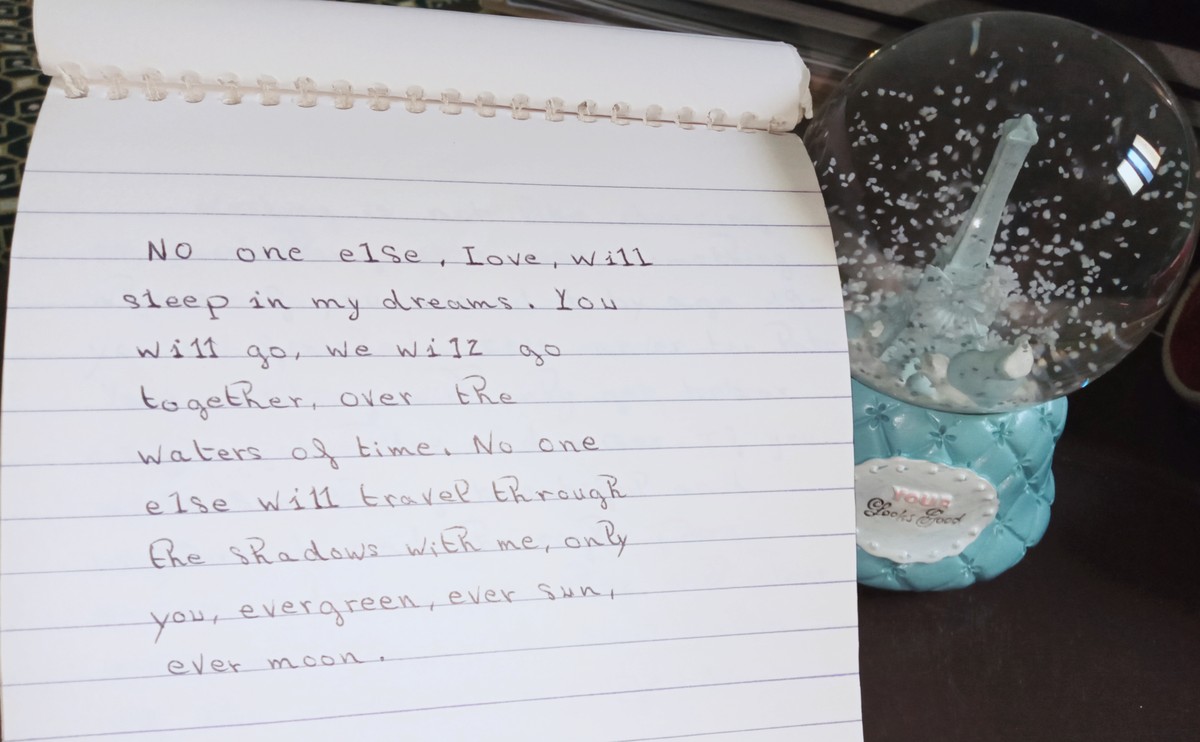 No one else, Love, will
sleep in my dreams. You
will go, we will go
together, over the
waters of time. No one
else will travel through
the shadows with me, only
you, evergreen, ever sun,
ever moon.
Your
Looks Good